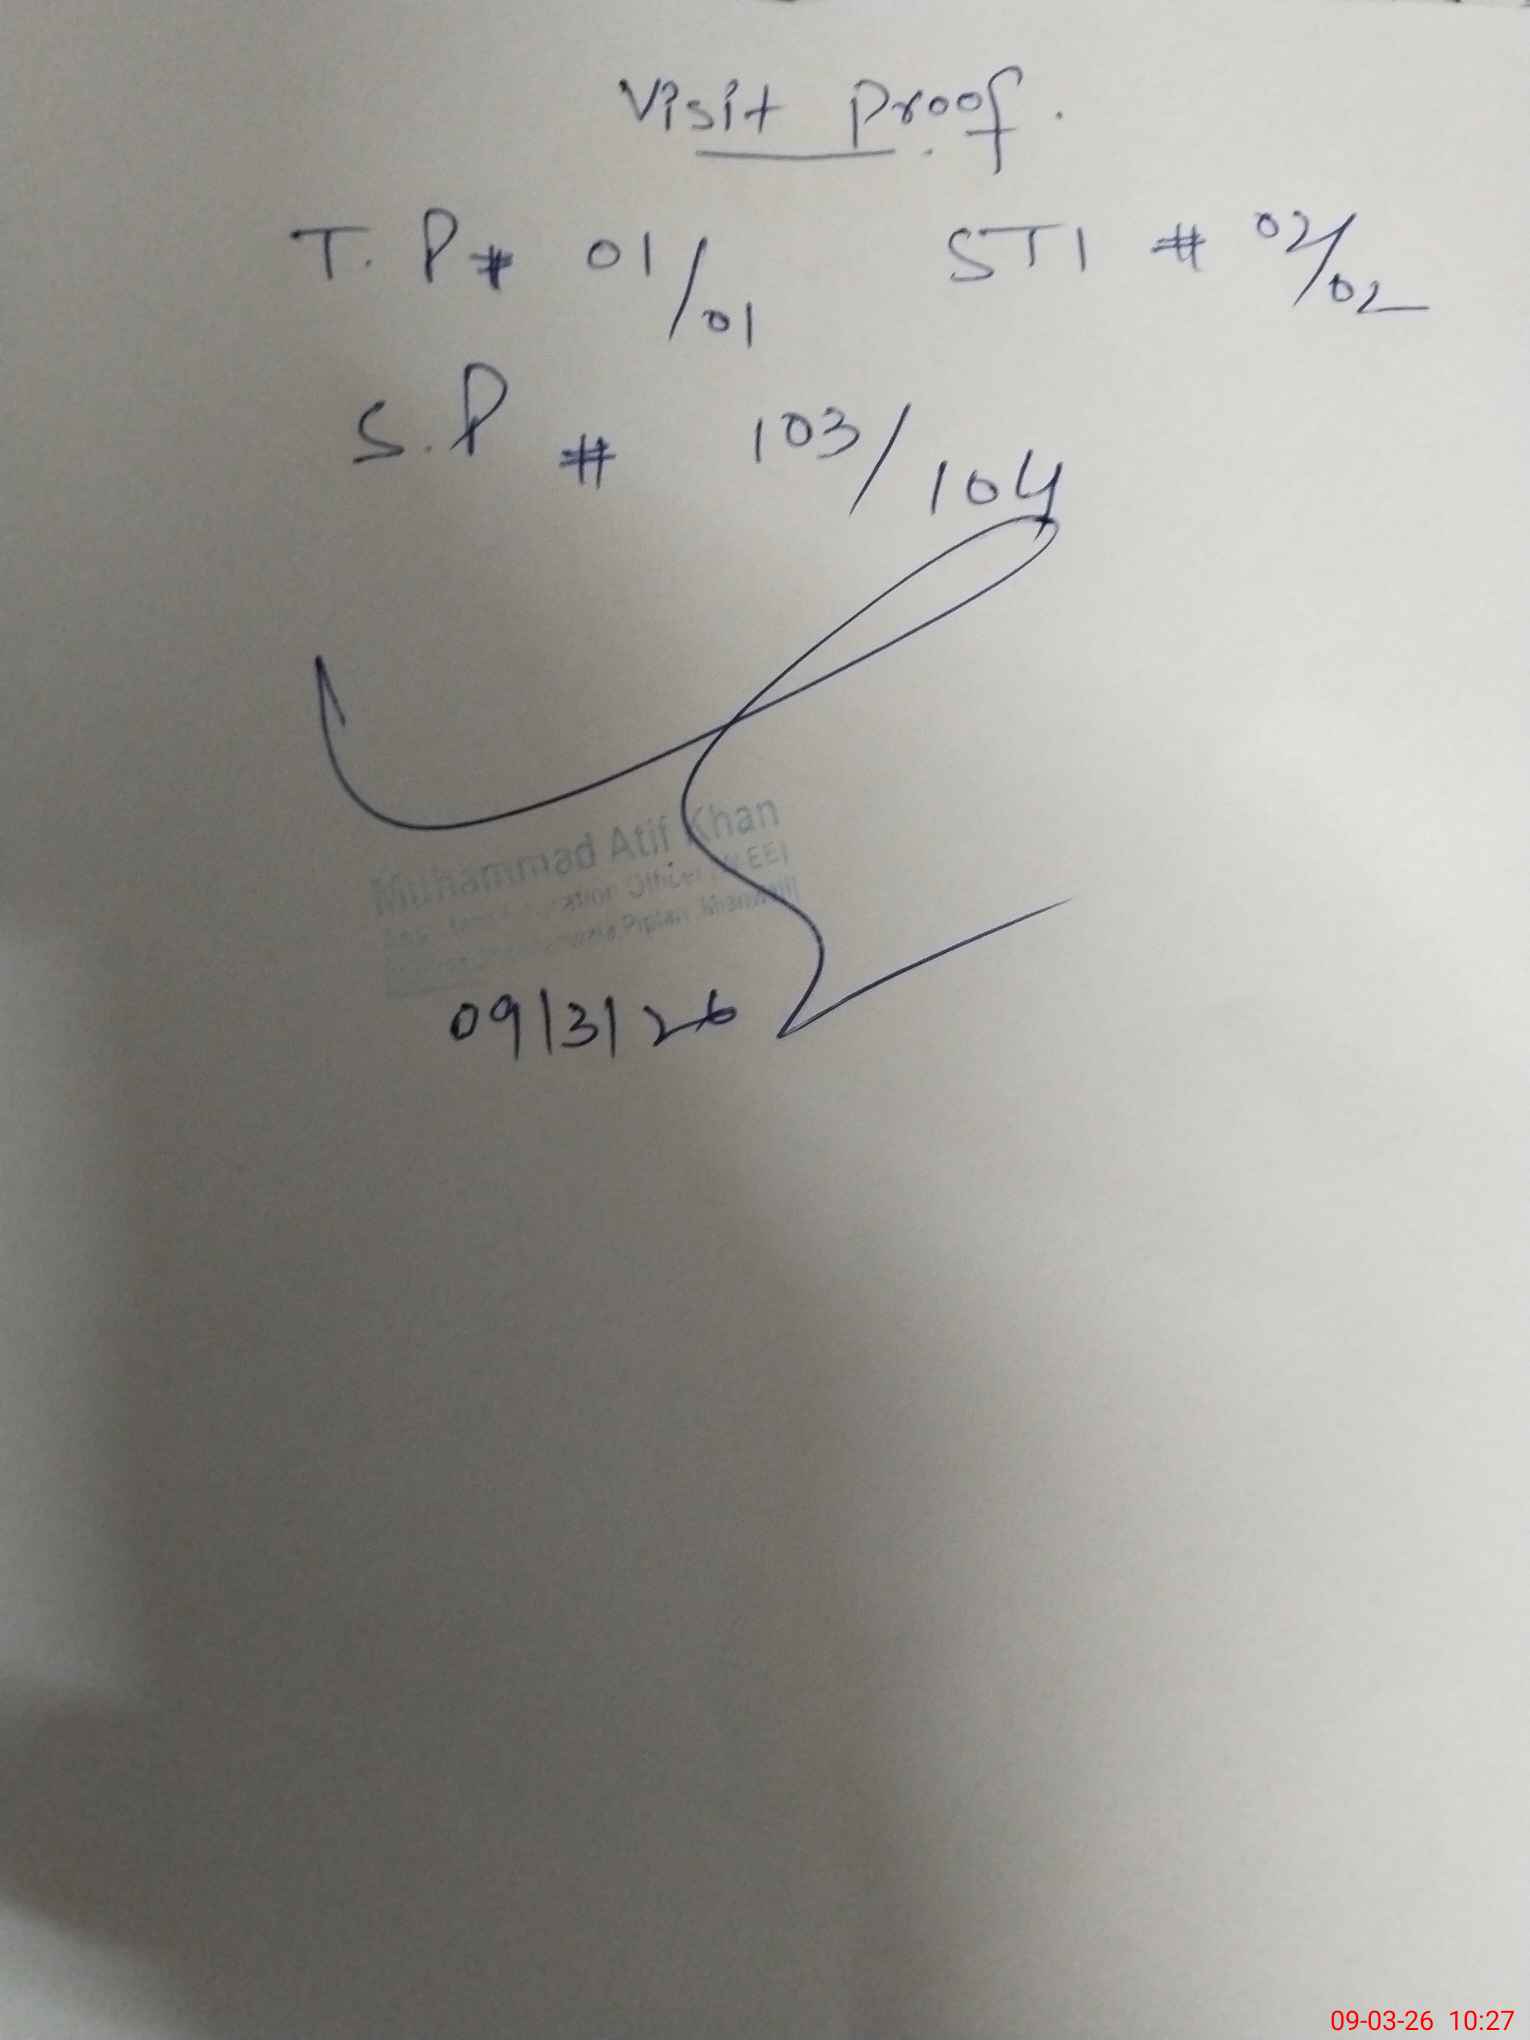 Visit Proof.
T. P# 01/01 STI # 02/02
S.P # 103/104
Muhammad Atif Khan
Officer
Piplan Mianwali
09/3/26
09-03-26 10:27